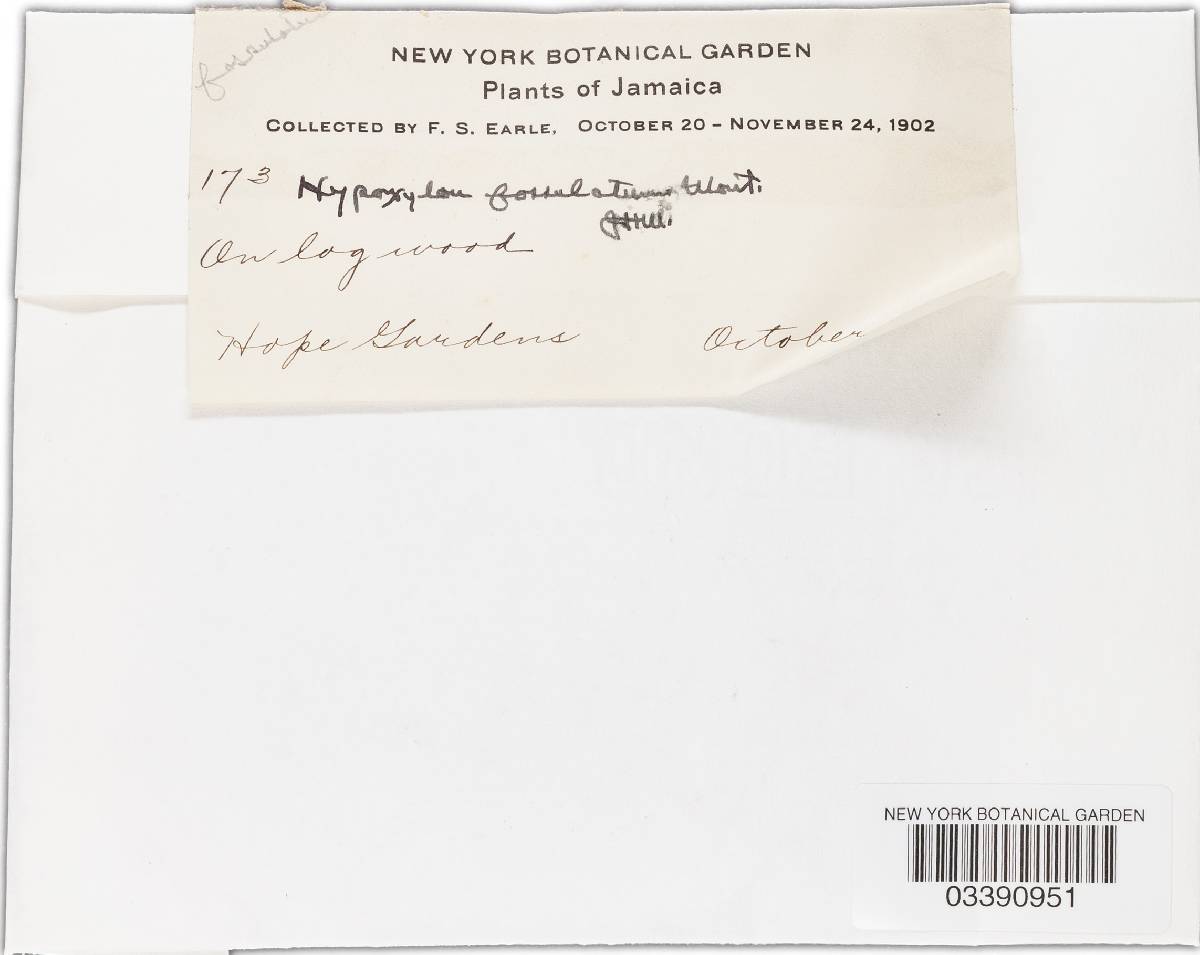 NEW YORK BOTANICAL GARDEN
Plants of Jamaica
COLLECTED BY F. S. EARLE, OCTOBER 20 – NOVEMBER 24, 1902
173 Hypoxylon fossulatum Mont.
On logwood
Hope Gardens October
NEW YORK BOTANICAL GARDEN
03390951